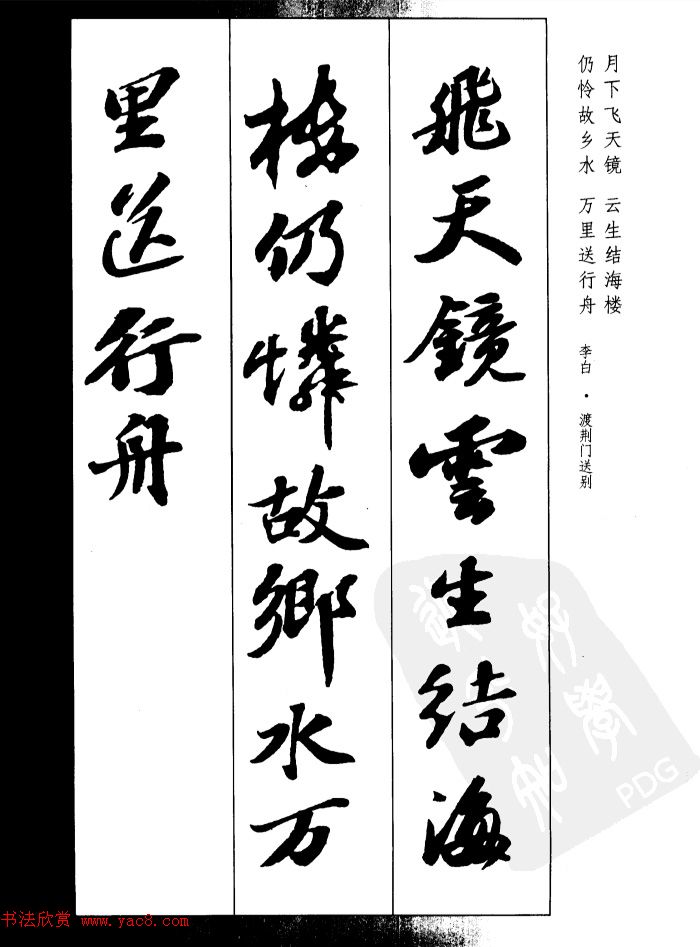 月下飞天镜 云生结海楼
仍怜故乡水 万里送行舟 李白・渡荆门送别
飛天鏡雲生结海
楼仍憐故鄉水万
里送行舟
PDG
书法欣赏 www.yac8.com